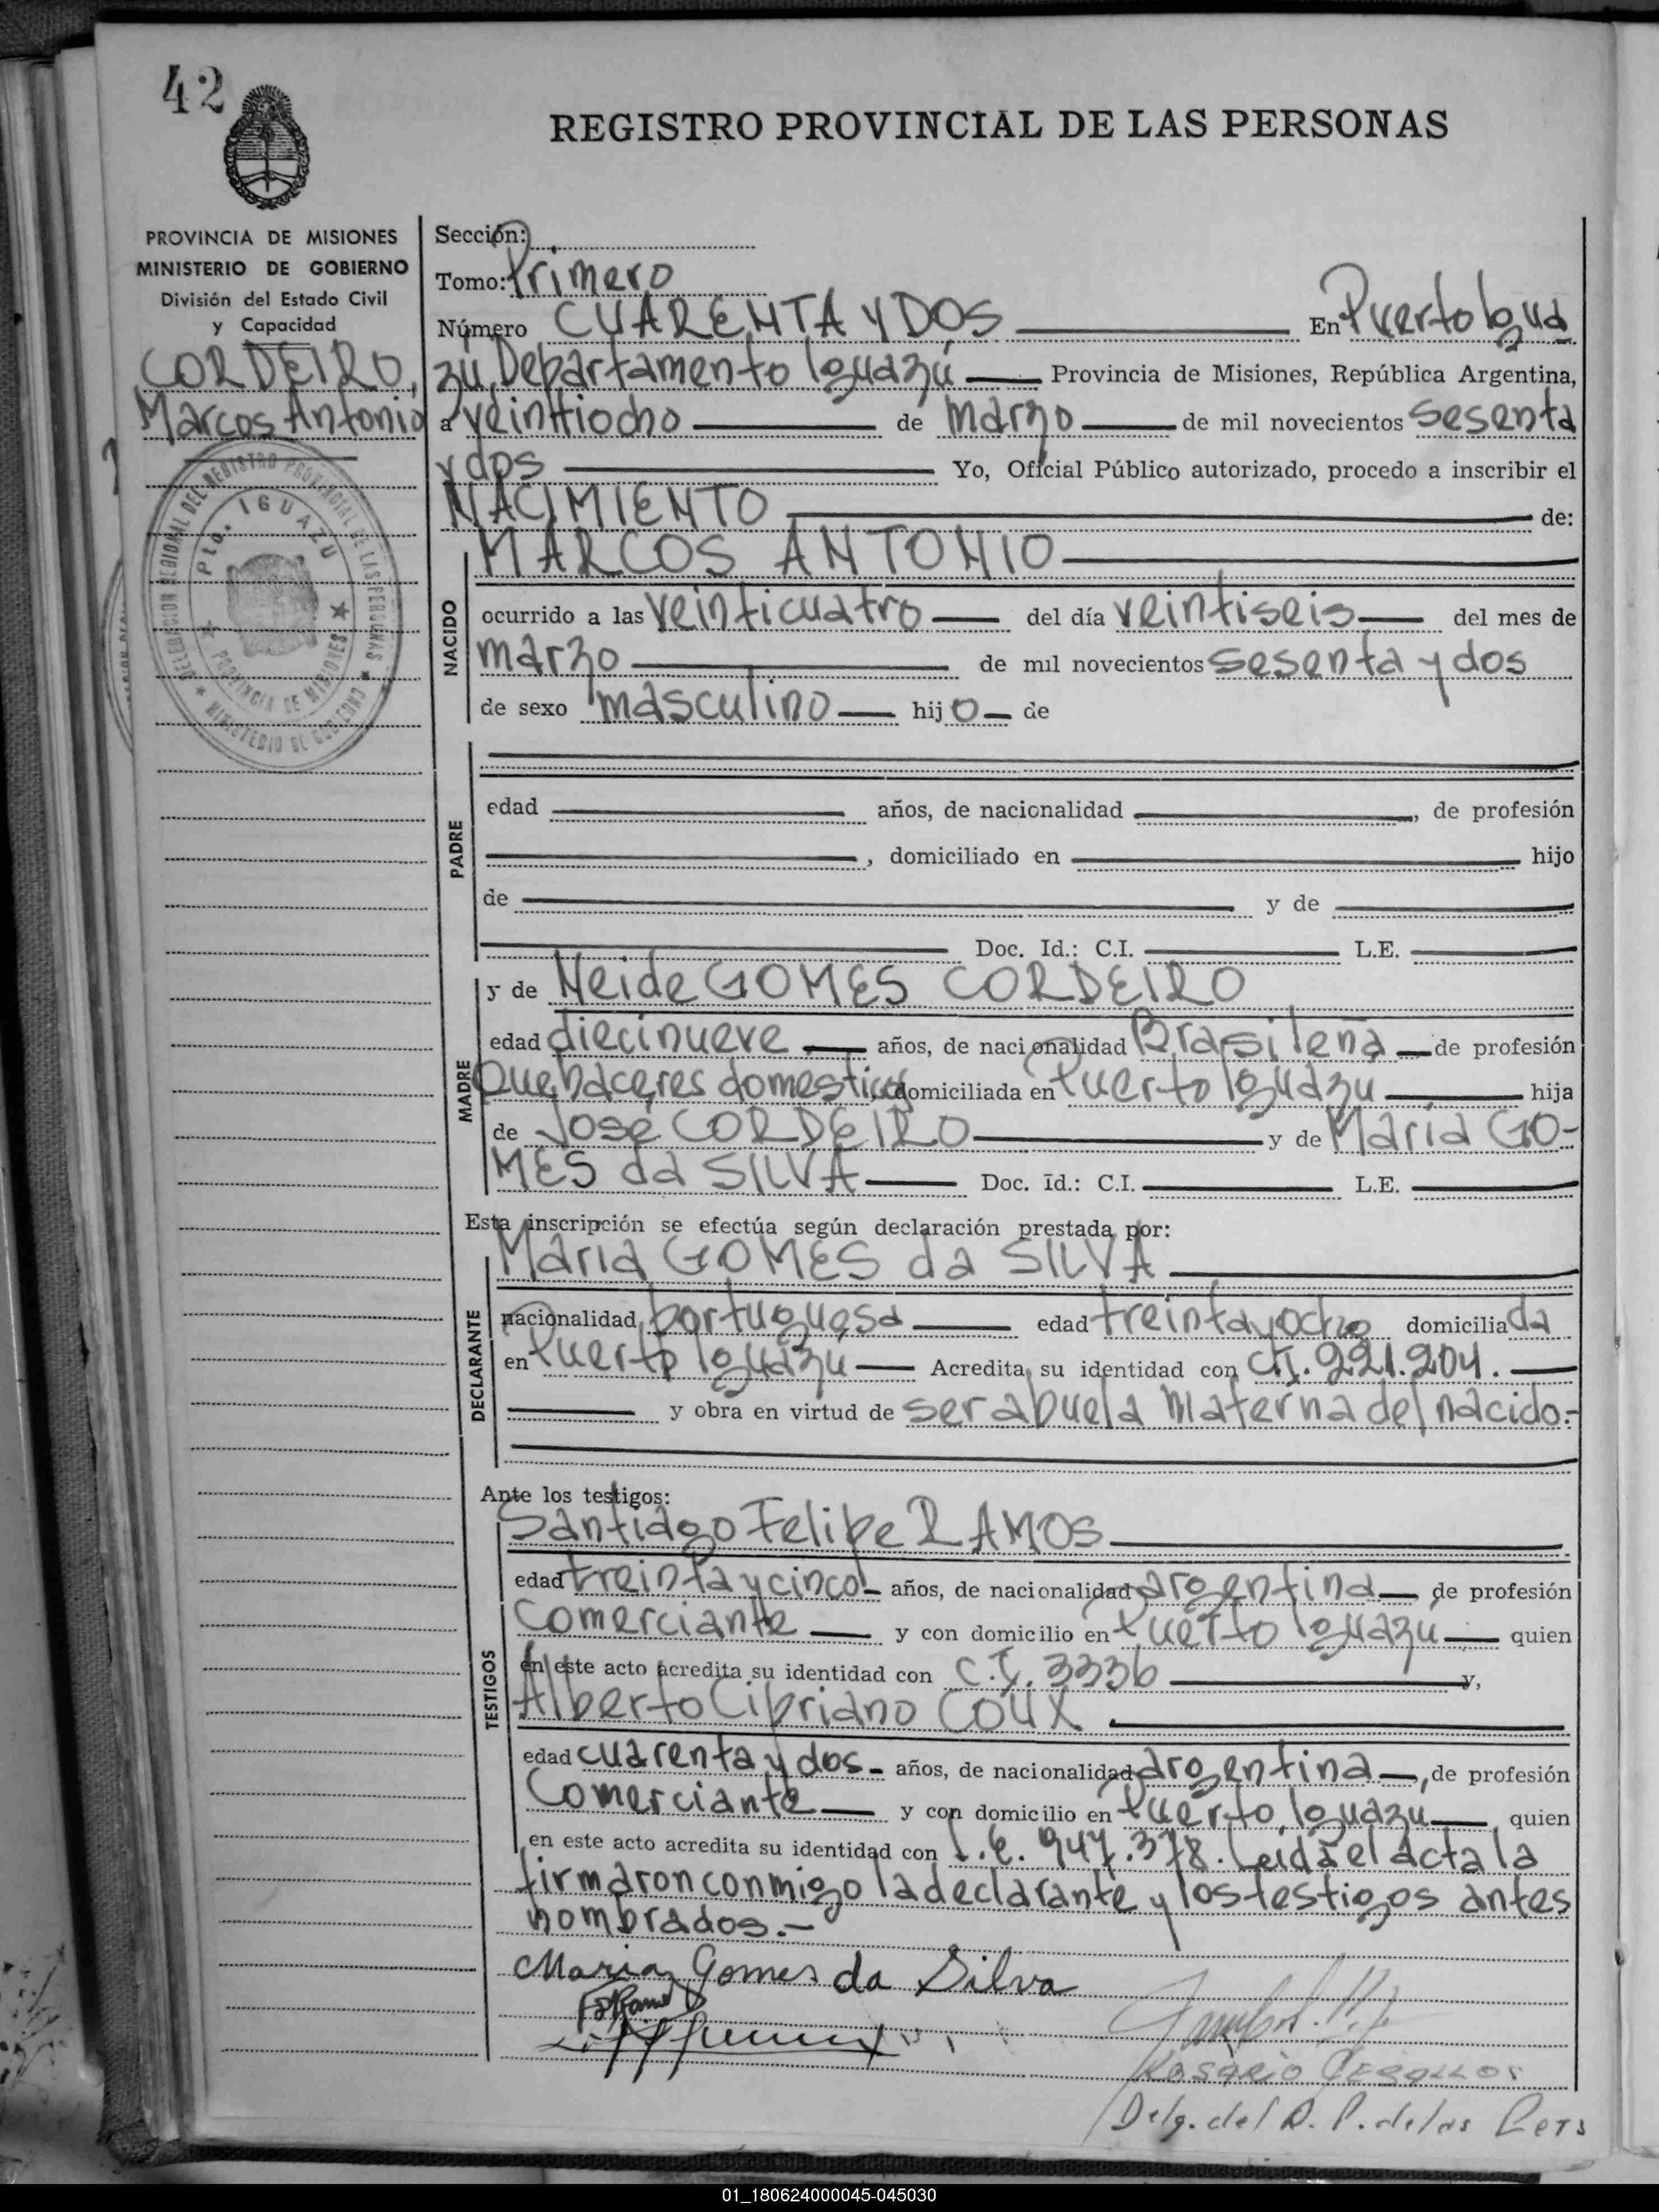 42
REGISTRO PROVINCIAL DE LAS PERSONAS
PROVINCIA DE MISIONES
MINISTERIO DE GOBIERNO
División del Estado Civil
y Capacidad
CORDEIRO,
Marcos Antonio
DELEGACION REGIONAL DEL REGISTRO PROVINCIAL DE LAS PERSONAS
MINISTERIO DE GOBIERNO
Pto. IGUAZU
PROVINCIA DE MISIONES
Sección:
Tomo: Primero
Número CUARENTA Y DOS En Puerto Igua
zú, Departamento Iguazú Provincia de Misiones, República Argentina,
a veintiocho de marzo de mil novecientos sesenta
y dos Yo, Oficial Público autorizado, procedo a inscribir el
NACIMIENTO de:
NACIDO
MARCOS ANTONIO
ocurrido a las veinticuatro del día veintiseis del mes de
marzo de mil novecientos sesenta y dos
de sexo masculino hijo de
PADRE
edad años, de nacionalidad , de profesión
, domiciliado en hijo
de y de
Doc. Id.: C.I. L.E.
MADRE
y de Neide GOMES CORDEIRO
edad diecinueve años, de nacionalidad Brasileña de profesión
Quehaceres domesticos, domiciliada en Puerto Iguazu hija
de José CORDEIRO y de Maria GO-
MES da SILVA Doc. Id.: C.I. L.E.
Esta inscripción se efectúa según declaración prestada por:
DECLARANTE
Maria GOMES da SILVA
nacionalidad portuguesa edad treinta y ocho domiciliada
en Puerto Iguazú Acredita su identidad con C.I. 221.204.
y obra en virtud de ser abuela materna del nacido.-
Ante los testigos:
TESTIGOS
Santiago Felipe RAMOS
edad treinta y cinco años, de nacionalidad argentina de profesión
Comerciante y con domicilio en Puerto Iguazú quien
en este acto acredita su identidad con C.I. 3336 y,
Alberto Cipriano COUX
edad cuarenta y dos años, de nacionalidad argentina, de profesión
Comerciante y con domicilio en Puerto Iguazú quien
en este acto acredita su identidad con L.E. 947.378. Leida el acta la
firmaron conmigo la declarante y los testigos antes
nombrados.-
Maria Gomes da Silva
Rosario
Delg. del R. P. de las Pers
01_180624000045-045030